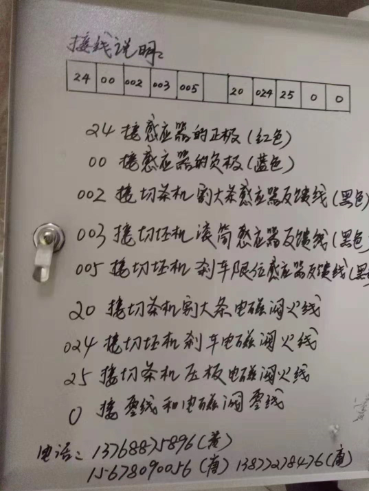 接线说明:
24 00 002 003 005 20 024 25 0 0
24 接感应器的正极(红色)
00 接感应器的负极(蓝色)
002 接切条机割大条感应器反馈线(黑色)
003 接切坯机滚筒感应器反馈线(黑色
005 接切坯机刹车限位感应器反馈线(黑
20 接切条机割大条电磁阀火线
024 接切坯机刹车电磁阀火线
25 接切条机压板电磁阀火线
0 接零线和电磁阀零线
电话:13768875896(黄)
15678090056(南)13877278476(南)